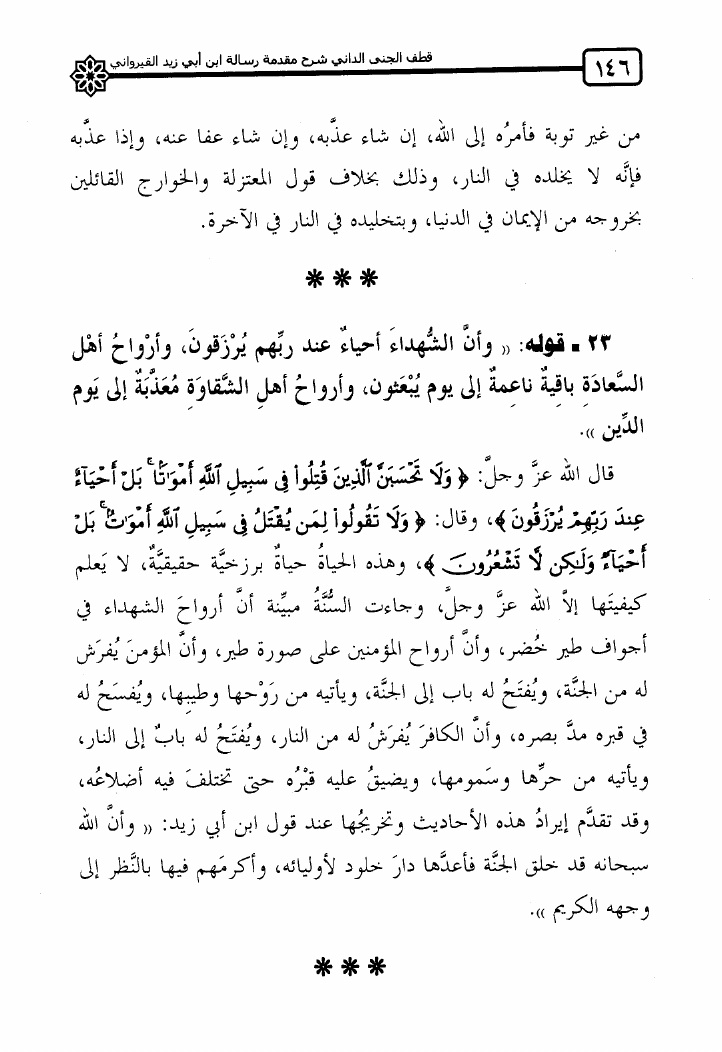 قطف الجنى الداني شرح مقدمة رسالة ابن أبي زيد القيرواني
١٤٦
من غير توبة فأمرُه إلى الله، إن شاء عذَّبه، وإن شاء عفا عنه، وإذا عذَّبه
فإنَّه لا يخلده في النار، وذلك بخلاف قول المعتزلة والخوارج القائلين
بخروجه من الإيمان في الدنيا، وبتخليده في النار في الآخرة.
* * *
٢٣ ـ قوله: « وأنَّ الشُّهداءَ أحياءٌ عند ربِّهم يُرْزَقونَ، وأرْواحُ أهْل
السَّعادَةِ باقِيةٌ ناعِمةٌ إلى يوم يُبْعَثون، وأرواحُ أهلِ الشَّقاوَةِ مُعَذَّبَةٌ إلى يَوم
الدِّين ».
قال الله عزَّ وجلَّ: ﴿ وَلَا تَحْسَبَنَّ ٱلَّذِينَ قُتِلُوا۟ فِى سَبِيلِ ٱللَّهِ أَمْوَٰتًۢا ۚ بَلْ أَحْيَآءٌ
عِندَ رَبِّهِمْ يُرْزَقُونَ ﴾، وقال: ﴿ وَلَا تَقُولُوا۟ لِمَن يُقْتَلُ فِى سَبِيلِ ٱللَّهِ أَمْوَٰتٌۢ ۚ بَلْ
أَحْيَآءٌ وَلَٰكِن لَّا تَشْعُرُونَ ﴾، وهذه الحياةُ حياةٌ برزخيَّة حقيقيَّةٌ، لا يَعلم
كيفيتَها إلاَّ الله عزَّ وجلَّ، وجاءت السُّنَّةُ مبيِّنة أنَّ أرواحَ الشهداء في
أجواف طير خُضر، وأنَّ أرواح المؤمنين على صورة طير، وأنَّ المؤمنَ يُفرَش
له من الجنَّة، ويُفتَحُ له باب إلى الجنَّة، ويأتيه من رَوْحها وطيبها، ويُفسَحُ له
في قبره مدَّ بصره، وأنَّ الكافرَ يُفرَشُ له من النار، ويُفتَحُ له بابٌ إلى النار،
ويأتيه من حرِّها وسَمومها، ويضيقُ عليه قبْرُه حتى تختلفَ فيه أضلاعُه،
وقد تقدَّم إيرادُ هذه الأحاديث وتخريجُها عند قول ابن أبي زيد: « وأنَّ الله
سبحانه قد خلق الجنَّة فأعدَّها دارَ خلود لأوليائه، وأكرمَهم فيها بالنَّظر إلى
وجهه الكريم ».
* * *